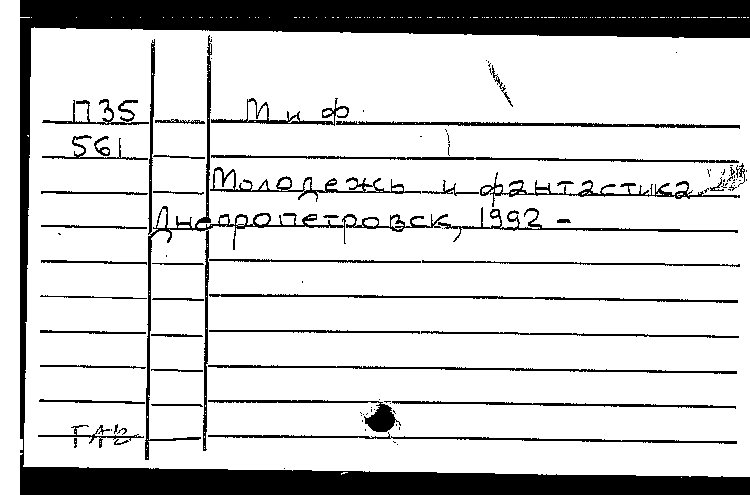 П35 М и ф
561
Молодежь и фантастика
Днепропетровск, 1992 -